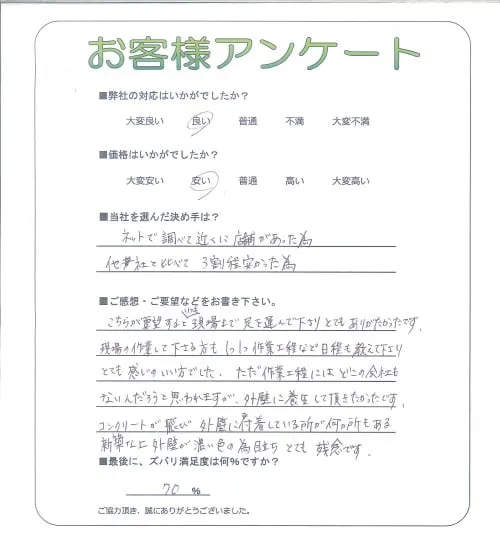 お客様アンケート
■弊社の対応はいかがでしたか？
大変良い 良い 普通 不満 大変不満
■価格はいかがでしたか？
大変安い 安い 普通 高い 大変高い
■当社を選んだ決め手は？
ネットで調べて近くに店舗があった為
他業社と比べて 3割程安かった為
■ご感想・ご要望などをお書き下さい。
こちらが要望すると いつも 現場まで足を運んで下さりとてもありがたかったです。
現場の作業して下さる方も 1つ1つ作業工程など日程も教えて下さり
とても感じのいい方でした。ただ作業工程にはどこの会社も
ないんだろうと思われますが、外壁に養生して頂きたかったです。
コンクリートが飛び 外壁に付着している所が何ヶ所もある
新築な上 外壁が濃い色の為目立ち とても 残念です。
■最後に、ズバリ満足度は何%ですか？
70 %
ご協力頂き、誠にありがとうございました。